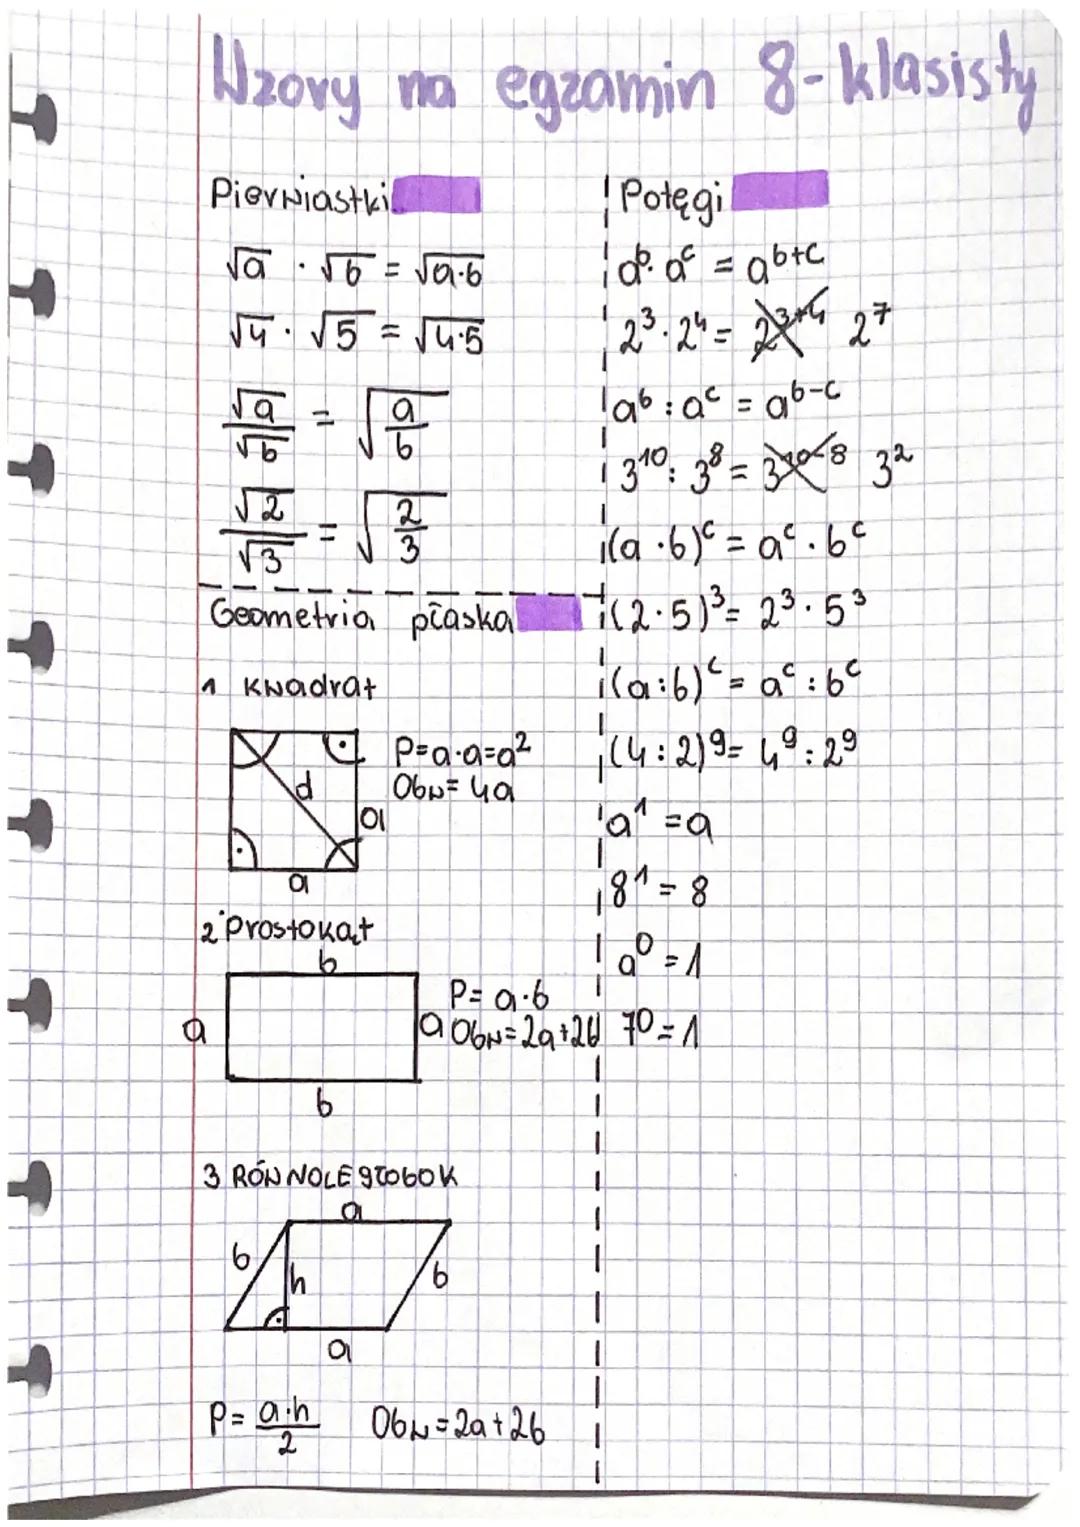 Wzory na egzamin 8-klasisty
Pierwiastki
√a · √b = √a·b
√4 · √5 = √4·5
√a/√b = √a/b
√2/√3 = √2/3
Geometria płaska
1 Kwadrat
P=a·a=a²
Obw=4a
d
a
a
2 Prostokąt
b
a
a
P= a·b
Obw=2a+2b
b
3 RÓWNOLEGŁOBOK
a
b
h
b
a
P= a·h/2 Obw=2a+2b
Potęgi
aᵇ · aᶜ = aᵇ⁺ᶜ
2³ · 2⁴ = 2³⁺⁴ 2⁷
aᵇ : aᶜ = aᵇ⁻ᶜ
3¹⁰ : 3⁸ = 3¹⁰⁻⁸ 3²
(a · b)ᶜ = aᶜ · bᶜ
(2 · 5)³ = 2³ · 5³
(a : b)ᶜ = aᶜ : bᶜ
(4 : 2)⁹ = 4⁹ : 2⁹
a¹ = a
8¹ = 8
a⁰ = 1
7⁰ = 1